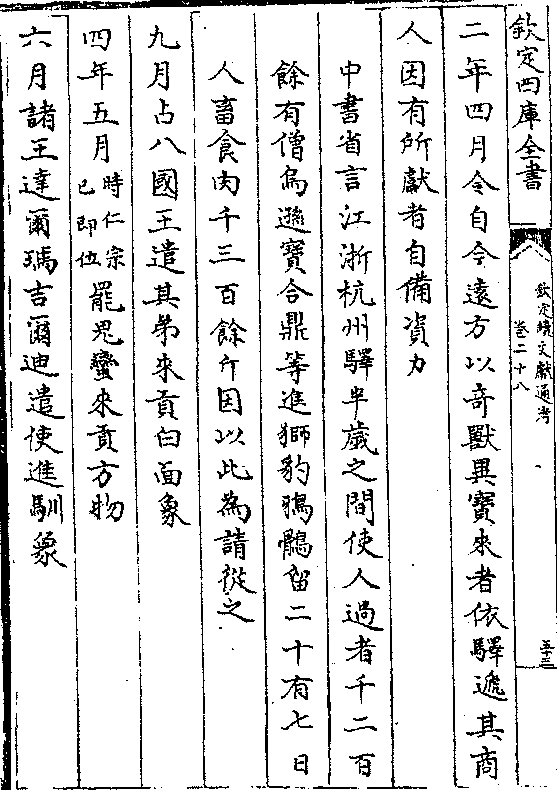 欽定四庫全書
欽定續文獻通考
卷二十八
五十三
二年四月令自今遠方以奇獸異寶來者依驛遞其商
人因有所獻者自備資力
中書省言江浙杭州驛半歲之間使人過者千二百
餘有僧烏遜寶合鼎等進獅豹鴉鶻留二十有七日
人畜食肉千三百餘斤因以此為請從之
九月占八國王遣其弟來貢白面象
四年五月時仁宗已即位罷鬼蠻來貢方物
六月諸王達爾瑪吉爾迪遣使進馴象